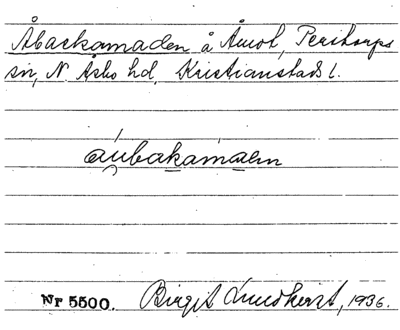 Åbackamaden å Åmot, Perstorps
sn, N Åsbo hd, Kristianstads l.
aubakamaden
Nr 5500. Birgit Lundkvist, 1936.